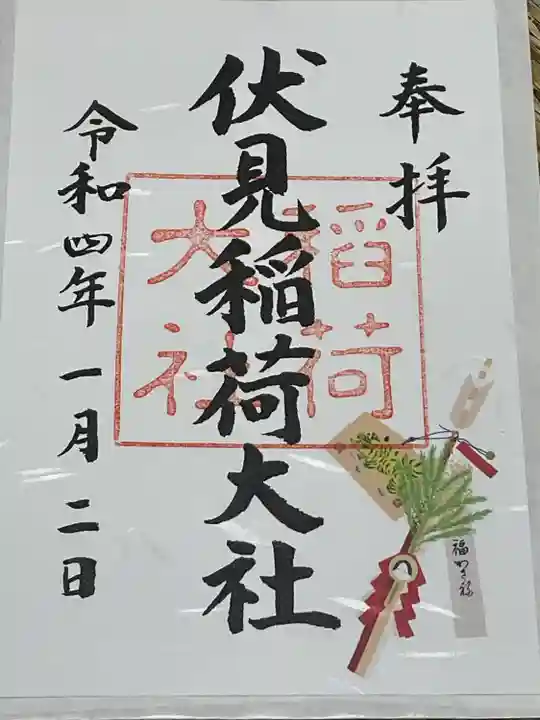 奉拝
伏見稲荷大社
令和四年一月二日
稲荷
大社